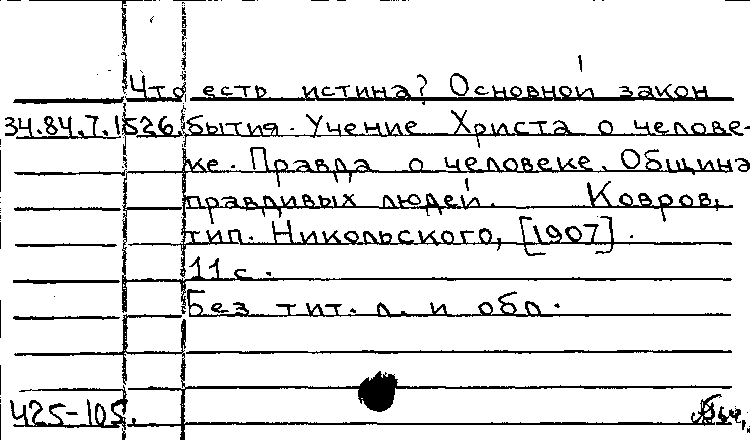 Что есть истина? Основной закон
34.84.7.1526. бытия. Учение Христа о челове-
ке. Правда о человеке. Община
правдивых людей. Ковров,
тип. Никольского, [1907].
11 с.
Без тит. л. и обл.
425-105.